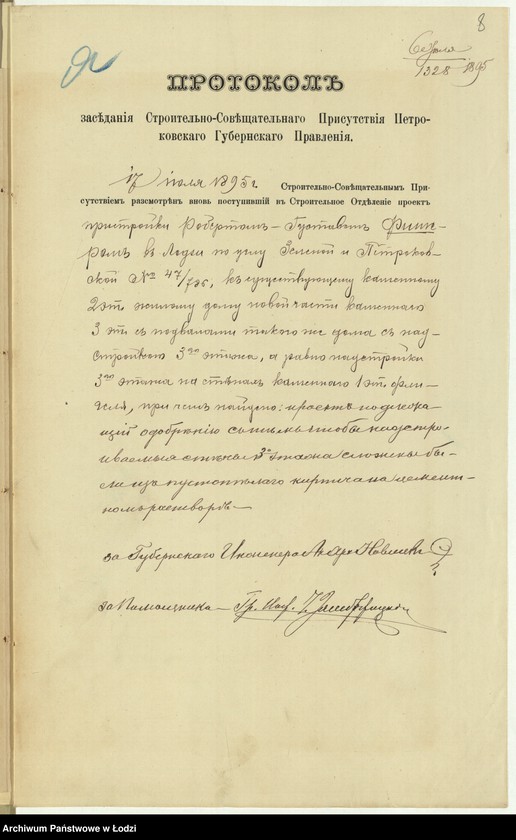 8
1328 1895
ПРОТОКОЛЪ
засѣданія Строительно-Совѣщательнаго Присутствія Петро-
ковскаго Губернскаго Правленія.
17 іюля 1895 г. Строительно-Совѣщательнымъ При-
сутствіемъ разсмотрѣнъ вновь поступившій въ Строительное Отдѣленіе проектъ
пристройки Робертомъ-Густавомъ
въ Лодзи по углу Зеленой и Петроков-
ской № 47/736, къ существующему каменному
2 эт. жилому дому новой части каменнаго
3 эт. съ подвалами такого же дома съ над-
стройкою 3го этажа, а равно надстройки
3го этажа на стѣнахъ каменнаго 1 эт. фли-
геля, при чемъ найдено: проектъ подлежа-
щій одобренію съ тѣмъ чтобы надстро-
иваемыя стѣны 3го этажа сложены бы-
ли изъ пустотѣлаго кирпича на цемент-
номъ растворѣ.
за Губернскаго Инженера
за Помощника
Archiwum Państwowe w Łodzi